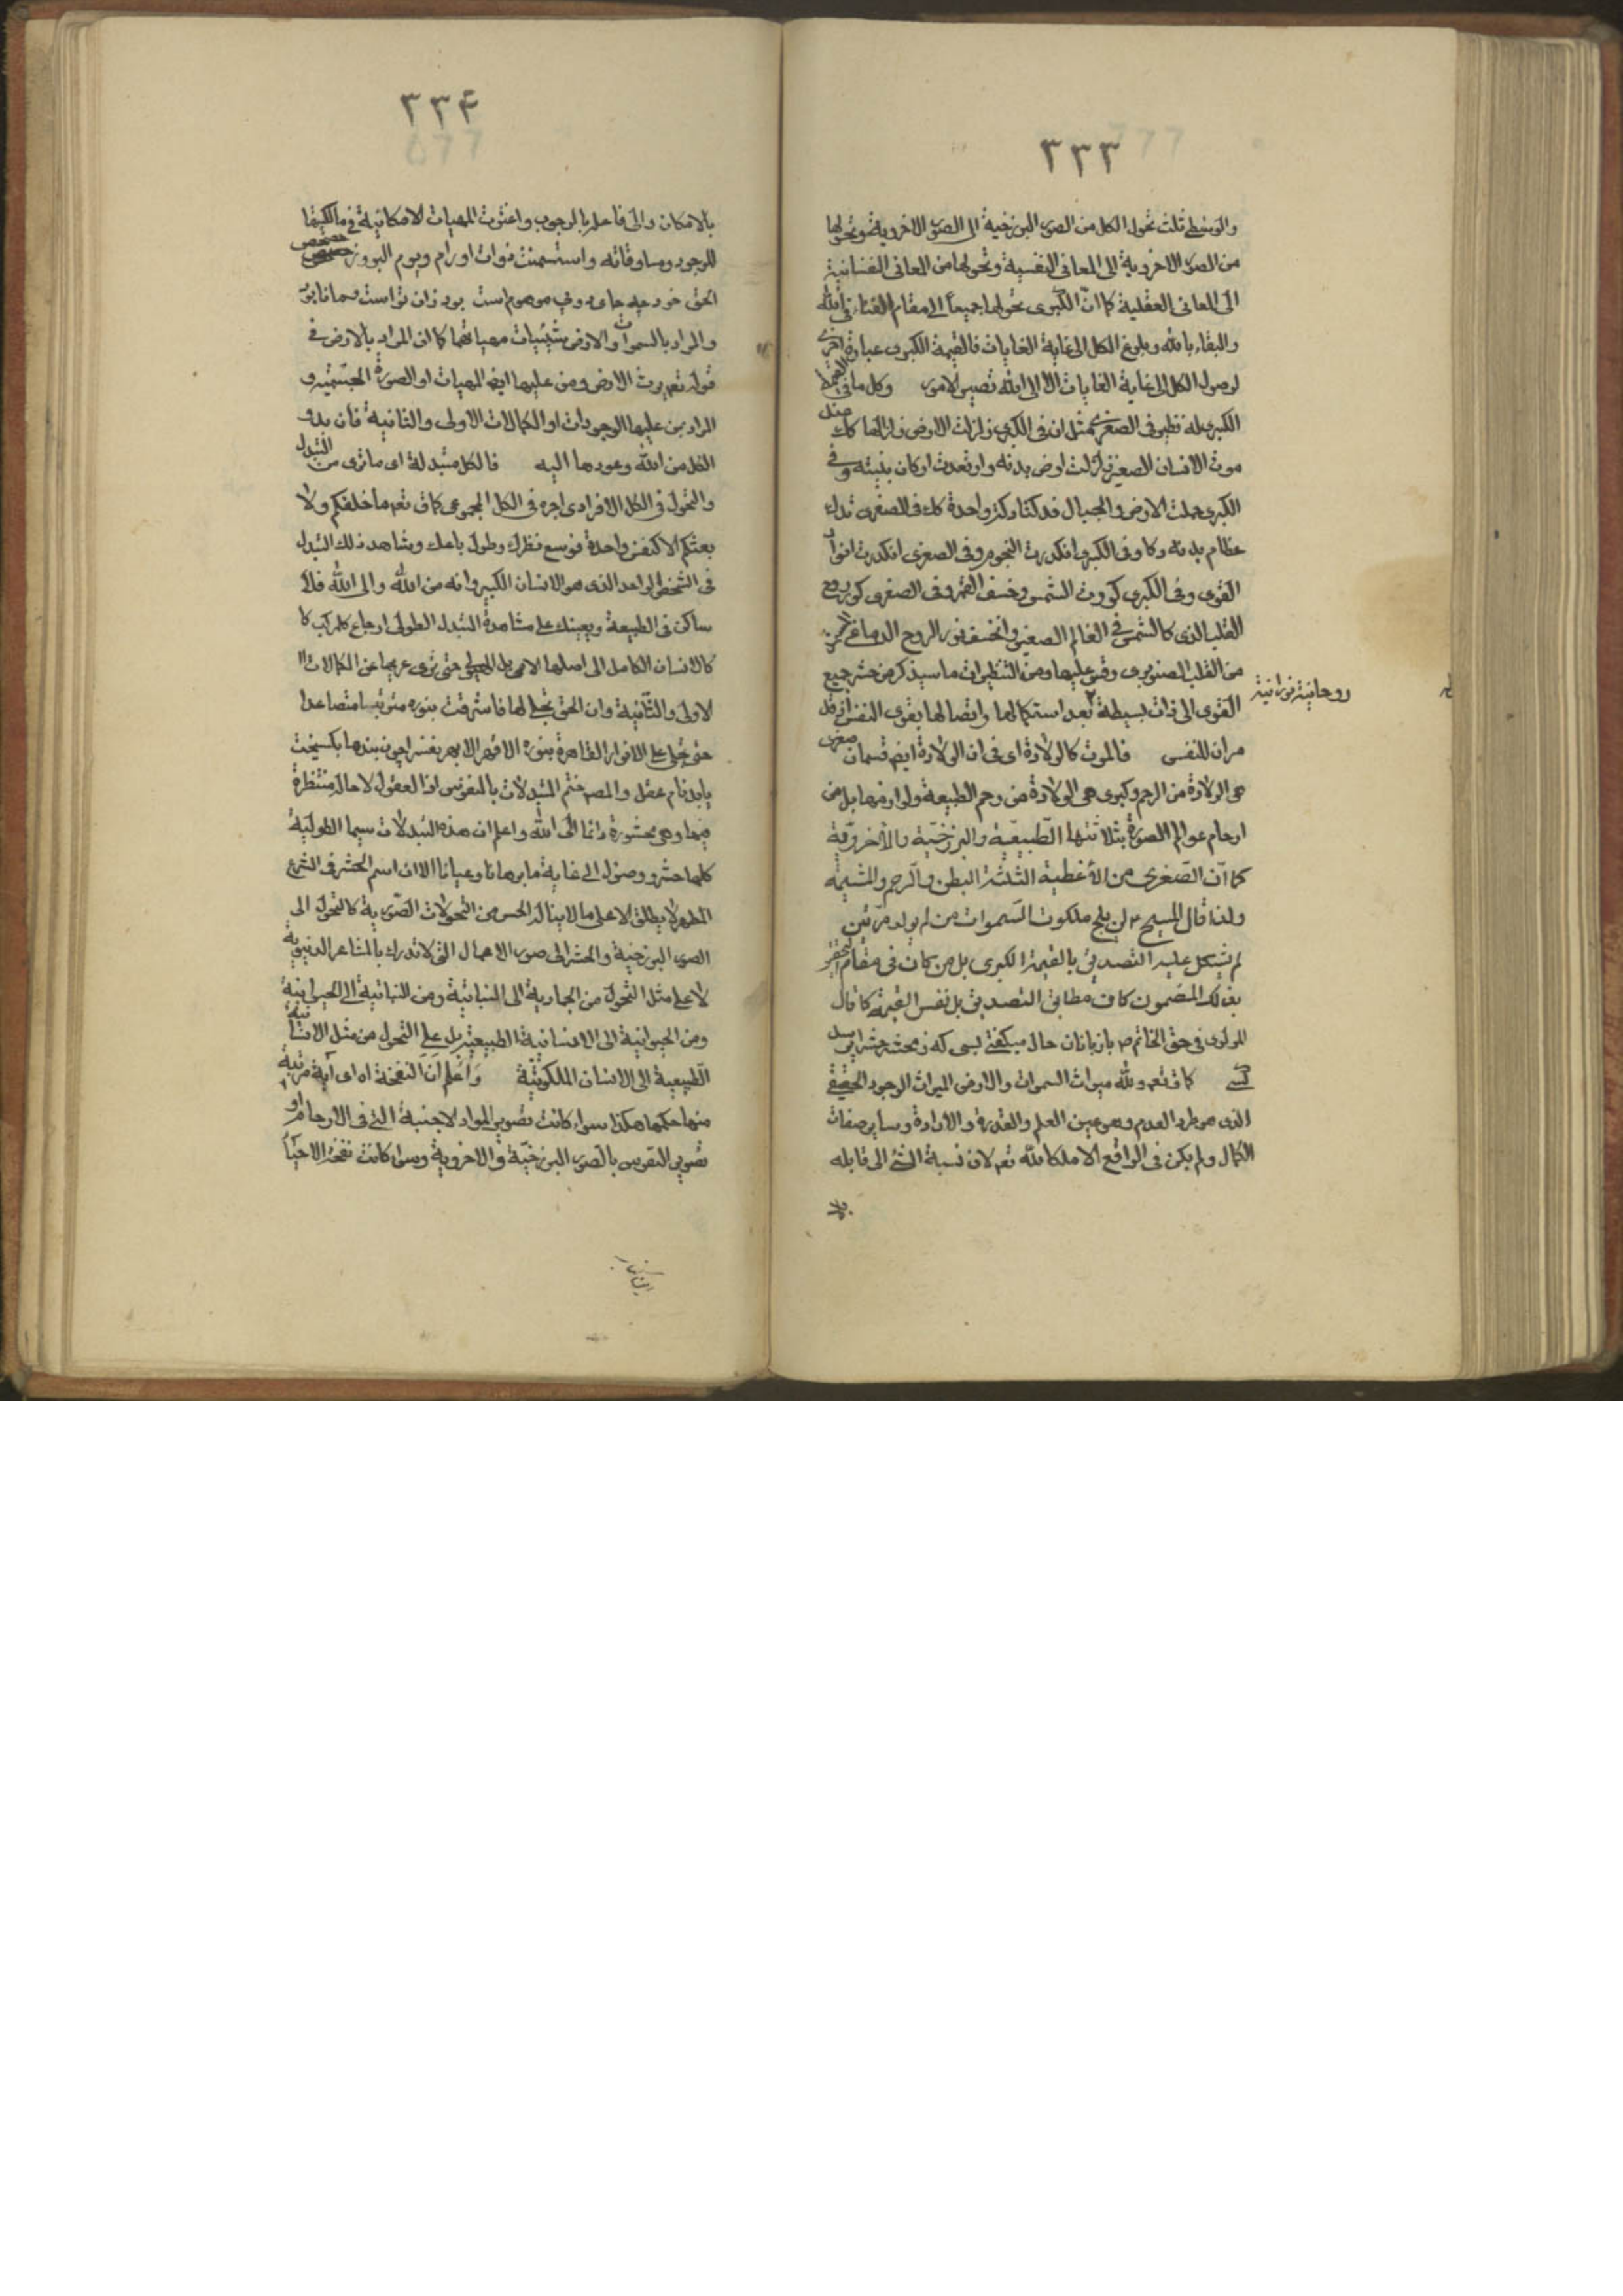 ٣٣٣
والوسطى ثلث تحول الكل من الصور البرزخية الى الصور الاخروية وتحولها
من الصور الاخروية الى المعانى النفسية وتحولها من المعانى النفسانية
الى المعانى العقلية كما ان الكبرى تحولها جميعاً الى مقام الفناء فى الله
والبقاء بالله وبلوغ الكل الى غاية الغايات فالقيمة الكبرى عبارة اخرى
لوصول الكل الى غاية الغايات الا الى الله تصير الامور وكل ما فى القيمة
الكبرى له نظير فى الصغرى مثل ان فى الكبرى زلزلت الارض زلزالها كك عند
موت الانسان الصغير زلزلت ارض بدنه وارتعدت اركان بنيته وفى
الكبرى حملت الارض والجبال فدكتا دكة واحدة كك فى الصغرى تدك
عظام بدنه دكا وفى الكبرى انكدرت النجوم وفى الصغرى انكدرت انوار
القوى وفى الكبرى كورت الشمس وخسف القمر وفى الصغرى كور روح
القلب الذى كالشمس فى العالم الصغير وانخسف نور الروح الدماغى
من القلب الصنوبرى وقس عليها ومن التنظيرات ما سيذكر من حشر جميع
القوى الى ذات بسيطة بعد استكمالها واتصالها بقوى النفس
روحانية نورانية
مران للنفس فالموت كالولادة اى فى ان الولادة ايض قسمان صغرى
هى الولادة من الرحم وكبرى هى الولادة من رحم الطبيعة ولوازمها بل من
ارحام عوالم الصورة بثلاثتها الطبيعية والبرزخية والاخروية
كما ان الصغرى من الاغطية الثلثة البطن والرحم والمشيمة
ولذا قال المسيح ع لن يلج ملكوت السموات من لم يولد مرتين
لم يشكل عليه التصديق بالقيمة الكبرى بل من كان فى مقام التحقق
بذلك المضمون كان مطابق التصديق بل نفس القيمة كما قال
المولوى فى حق الخاتم ص با زبان حال ميكفتى بسى كه ز محشر حشر را پرسد
كسى كما ق تعه ولله ميراث السموات والارض الميراث الوجود الحقيقى
الذى هو طرد العدم وهو عين العلم والقدرة والارادة وساير صفات
الكمال ولم يكن فى الواقع الا ملكا لله تعه لان نسبة الشئ الى قابله
٣٣۴
بالامكان والى فاعله بالوجوب واغترت المهيات الامكانية فى مالكيتها
للوجود ومساوقاته واستسمنت ذوات اورام ويوم البروز حصحص
الحق خود چه جاى دوئى موهوم است بود زان تو است وما نابود
والمراد بالسموات والارض شيئيات مهياتهما كما ان المراد بالارض فى
قوله تعه يرث الارض ومن عليها ايض المهيات او الصورة الجسمية و
المراد بمن عليها الوجودات او الكمالات الاولى والثانية فان بدو
الكل من الله وعودها اليه فالكل متبدلة اى ما ترى من التبدل
والتحول فى الكل الافرادى اجره فى الكل المجموعى كما ق تعه ما خلقكم ولا
بعثكم الا كنفس واحدة فوسع نظرك وطول باعك وشاهد ذلك التبدل
فى الشخص الواحد الذى هو الانسان الكبير وانه من الله والى الله فلا
ساكن فى الطبيعة ويعينك على مشاهدة التبدل الطولى ارجاع كل مركب كا
كالانسان الكامل الى اصلها الاول الهيولى حتى ترى عريها عن الكمالات
الاولى والثانية وان الحق تجلى لها فاشرقت بنوره متوغلا متصاعدا
حتى تجلى على الانوار القاهرة بنوره الاقهر الابهر
ختم التبدلات بالنفوس اذ العقول لا حالة منتظرة
فيها وهى محشورة دائما الى الله واعلم ان هذه التبدلات سيما الطولية
كلها حشر ووصول الى غاية ما برهانا وعيانا الا ان اسم الحشر فى الشرع
المطهر لا يطلق الا على ما لا يناله الحس من التحولات الصورية كالتحول الى
الصور البرزخية والحشر الى صور الاعمال التى لا تدرك بالمشاعر الدنيوية
لا على مثل التحول من الجمادية الى النباتية ومن النباتية الى الحيوانية
ومن الحيوانية الى الانسانية الطبيعية بل على التحول من مثل الانسانية
الطبيعية الى الانسان الملكوتية واعلم ان النفخة اه اى اية مرتبة
منها حكمها هكذا سواء كانت تصوير المواد الاجنبة التى فى الارحام او
تصوير النفوس بالصور البرزخية والاخروية وسواء كانت نفخة الاحياء